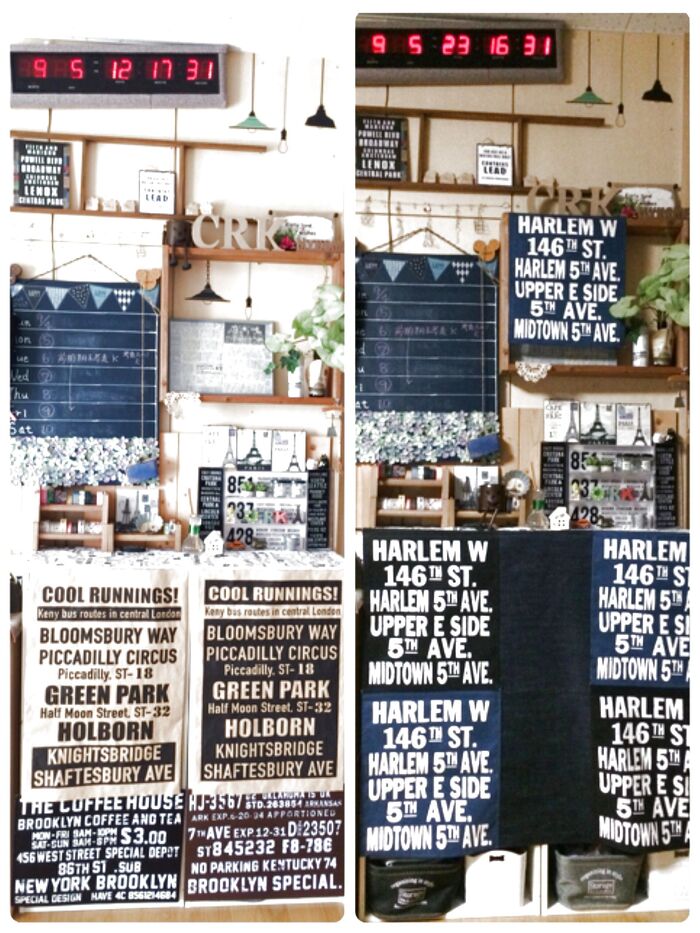 9 5 12 17 31
FIFTH AND
POWELL BLVD
BROADWAY
LENOX
CENTRAL PARK
CONTAINS
LEAD
CRK
8
10
PARIS
85
237
428
COOL RUNNINGS!
Keny bus routes in central London
BLOOMSBURY WAY
PICCADILLY CIRCUS
Piccadilly, ST-18
GREEN PARK
Half Moon Street, ST-32
HOLBORN
KNIGHTSBRIDGE
SHAFTESBURY AVE
COOL RUNNINGS!
Keny bus routes in central London
BLOOMSBURY WAY
PICCADILLY CIRCUS
Piccadilly, ST-18
GREEN PARK
Half Moon Street, ST-32
HOLBORN
KNIGHTSBRIDGE
SHAFTESBURY AVE
THE COFFEE HOUSE
BROOKLYN COFFEE AND TEA
MON-FRI 9AM-10PM
SAT-SUN 9AM-8PM $3.00
456 WEST STREET SPECIAL DEPOT
86TH ST .SUB
NEW YORK BROOKLYN
SPECIAL DESIGN HAVE 4C 8561214684
HJ-3567 OKLAHOMA IS OK
STD.263854 ARKANSAS
ARK EXP.6-20-94 APPORTIONED
7TH AVE EXP.12-31 23507
ST845232 F8-786
NO PARKING KENTUCKY 74
BROOKLYN SPECIAL.
9 5 23 16 31
POWELL BLVD
BROADWAY
LENOX
CENTRAL PARK
CONTAINS
LEAD
CRK
HARLEM W
146TH ST.
HARLEM 5TH AVE.
UPPER E SIDE
5TH AVE.
MIDTOWN 5TH AVE.
85
237
428
HARLEM W
146TH ST.
HARLEM 5TH AVE.
UPPER E SIDE
5TH AVE.
MIDTOWN 5TH AVE.
HARLEM
146TH S
HARLEM 5TH A
UPPER E SI
5TH AV
MIDTOWN 5TH
HARLEM W
146TH ST.
HARLEM 5TH AVE.
UPPER E SIDE
5TH AVE.
MIDTOWN 5TH AVE.
HARLEM
146TH S
HARLEM 5TH A
UPPER E SI
5TH AV
MIDTOWN 5TH
Storage
Storage